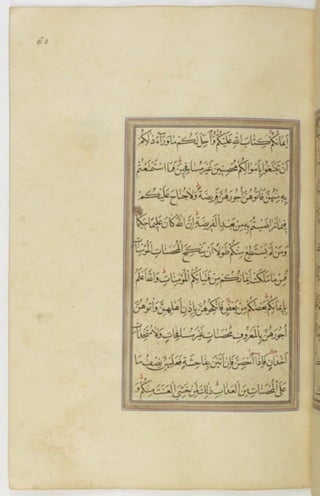 60
اَيْمَانُكُمْ كِتَابَ اللهِ عَلَيْكُمْ وَاُحِلَّ لَكُمْ مَا وَرَآءَ ذٰلِكُمْ
اَنْ تَبْتَغُوا بِاَمْوَالِكُمْ مُحْصِنِينَ غَيْرَ مُسَافِحِينَ فَمَا اسْتَمْتَعْتُمْ
بِهِ مِنْهُنَّ فَاٰتُوهُنَّ اُجُورَهُنَّ فَرِيضَةً وَلَا جُنَاحَ عَلَيْكُمْ
فِيمَا تَرَاضَيْتُمْ بِهِ مِنْ بَعْدِ الْفَرِيضَةِ اِنَّ اللهَ كَانَ عَلِيمًا حَكِيمًا
وَمَنْ لَمْ يَسْتَطِعْ مِنْكُمْ طَوْلًا اَنْ يَنْكِحَ الْمُحْصَنَاتِ الْمُؤْمِنَاتِ
فَمِنْ مَا مَلَكَتْ اَيْمَانُكُمْ مِنْ فَتَيَاتِكُمُ الْمُؤْمِنَاتِ وَاللهُ اَعْلَمُ
بِاِيمَانِكُمْ بَعْضُكُمْ مِنْ بَعْضٍ فَانْكِحُوهُنَّ بِاِذْنِ اَهْلِهِنَّ وَاٰتُوهُنَّ
اُجُورَهُنَّ بِالْمَعْرُوفِ مُحْصَنَاتٍ غَيْرَ مُسَافِحَاتٍ وَلَا مُتَّخِذَاتِ
اَخْدَانٍ فَاِذَا اُحْصِنَّ فَاِنْ اَتَيْنَ بِفَاحِشَةٍ فَعَلَيْهِنَّ نِصْفُ مَا
عَلَى الْمُحْصَنَاتِ مِنَ الْعَذَابِ ذٰلِكَ لِمَنْ خَشِيَ الْعَنَتَ مِنْكُمْ وَ